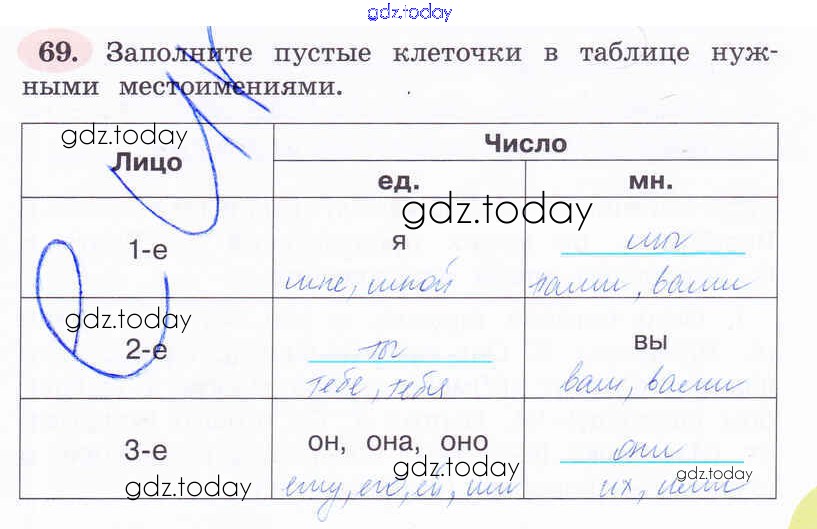 gdz.today
69. Заполните пустые клеточки в таблице нуж-
ными местоимениями.
gdz.today
Лицо
Число
ед. мн.
gdz.today
1-е я мы
мне, мной нами, вами
gdz.today
2-е ты вы
тебе, тебя вам, вами
3-е он, она, оно они
gdz.today gdz.today gdz.today
ему, его, ей, им их, ими